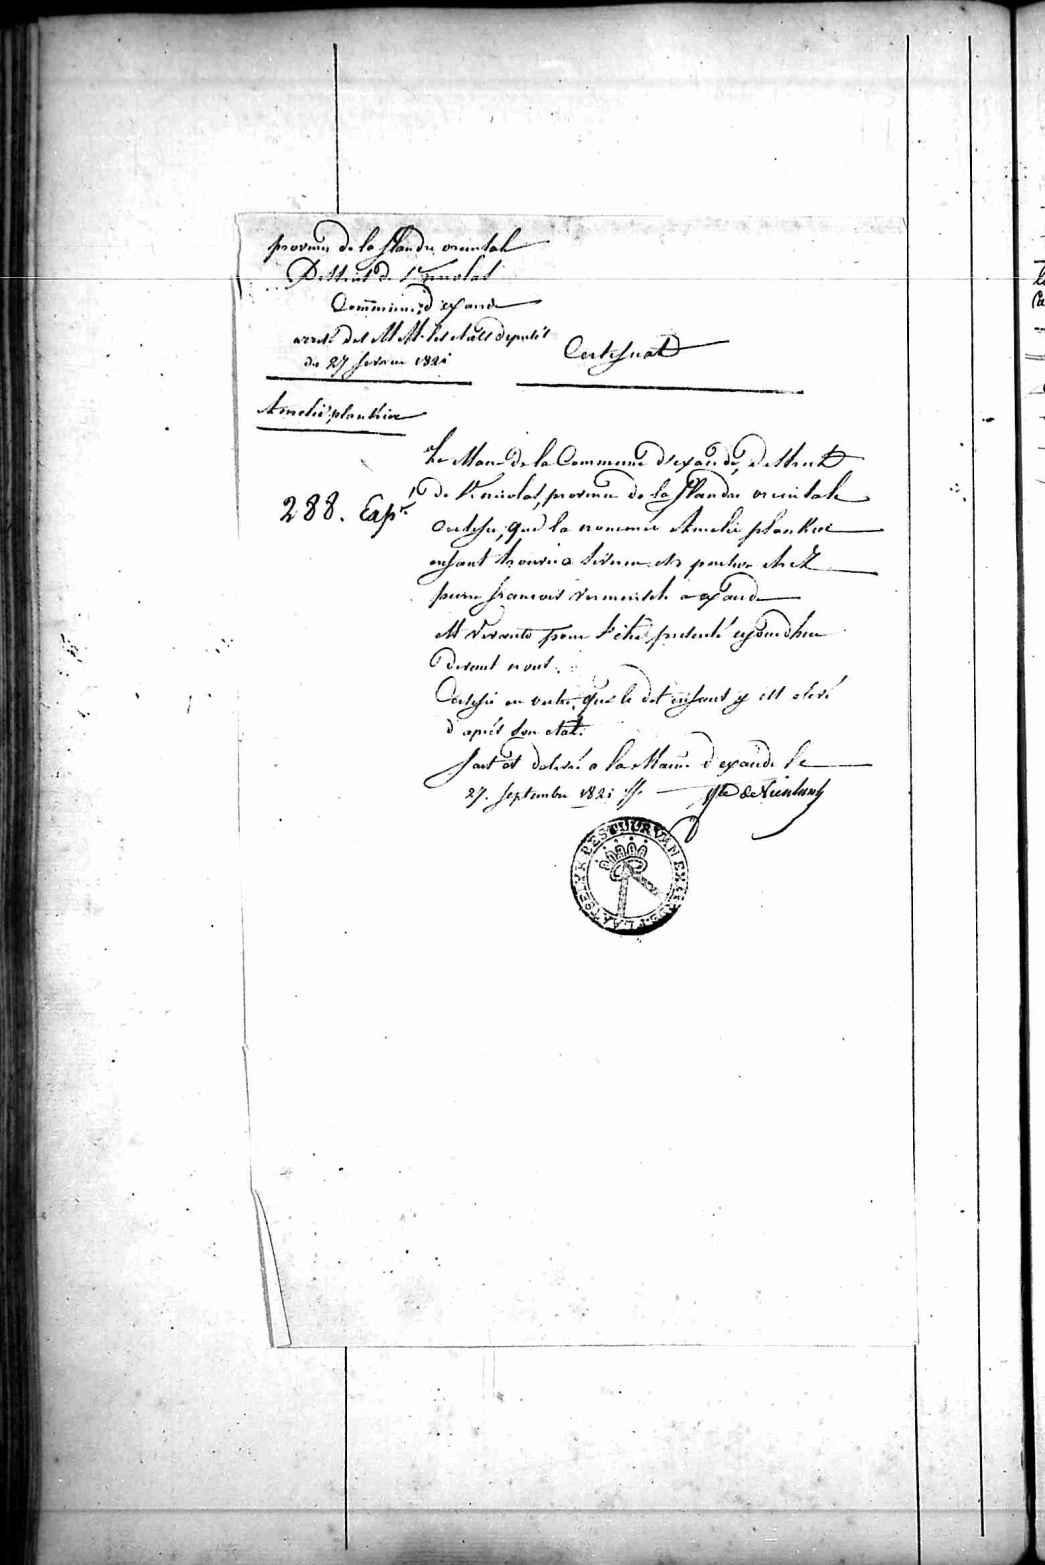 province de la flandre orientale
District de St nicolas
Commune d'exaarde
arreté des M M. les etats deputés
du 27 fevrier 1821
Certificat
Amelie plankier
288. Exp.
Le Maire de la Commune d'exaarde, District
de St. nicolas, province de la flandre orientale
certifie, que la nommée Amelie plankier
enfant trouvée a termonde
pierre francois vermeirsch a exaarde
est vivante pour s'etre presenté aujourdhui
devant nous.
Certifie en outre, que le dit enfant y est elevé
d'après son etat.
fait et delivré a la Mairie d'exaarde le
27. septembre 1821
PLAATSELYK BESTUUR VAN EXAERDE